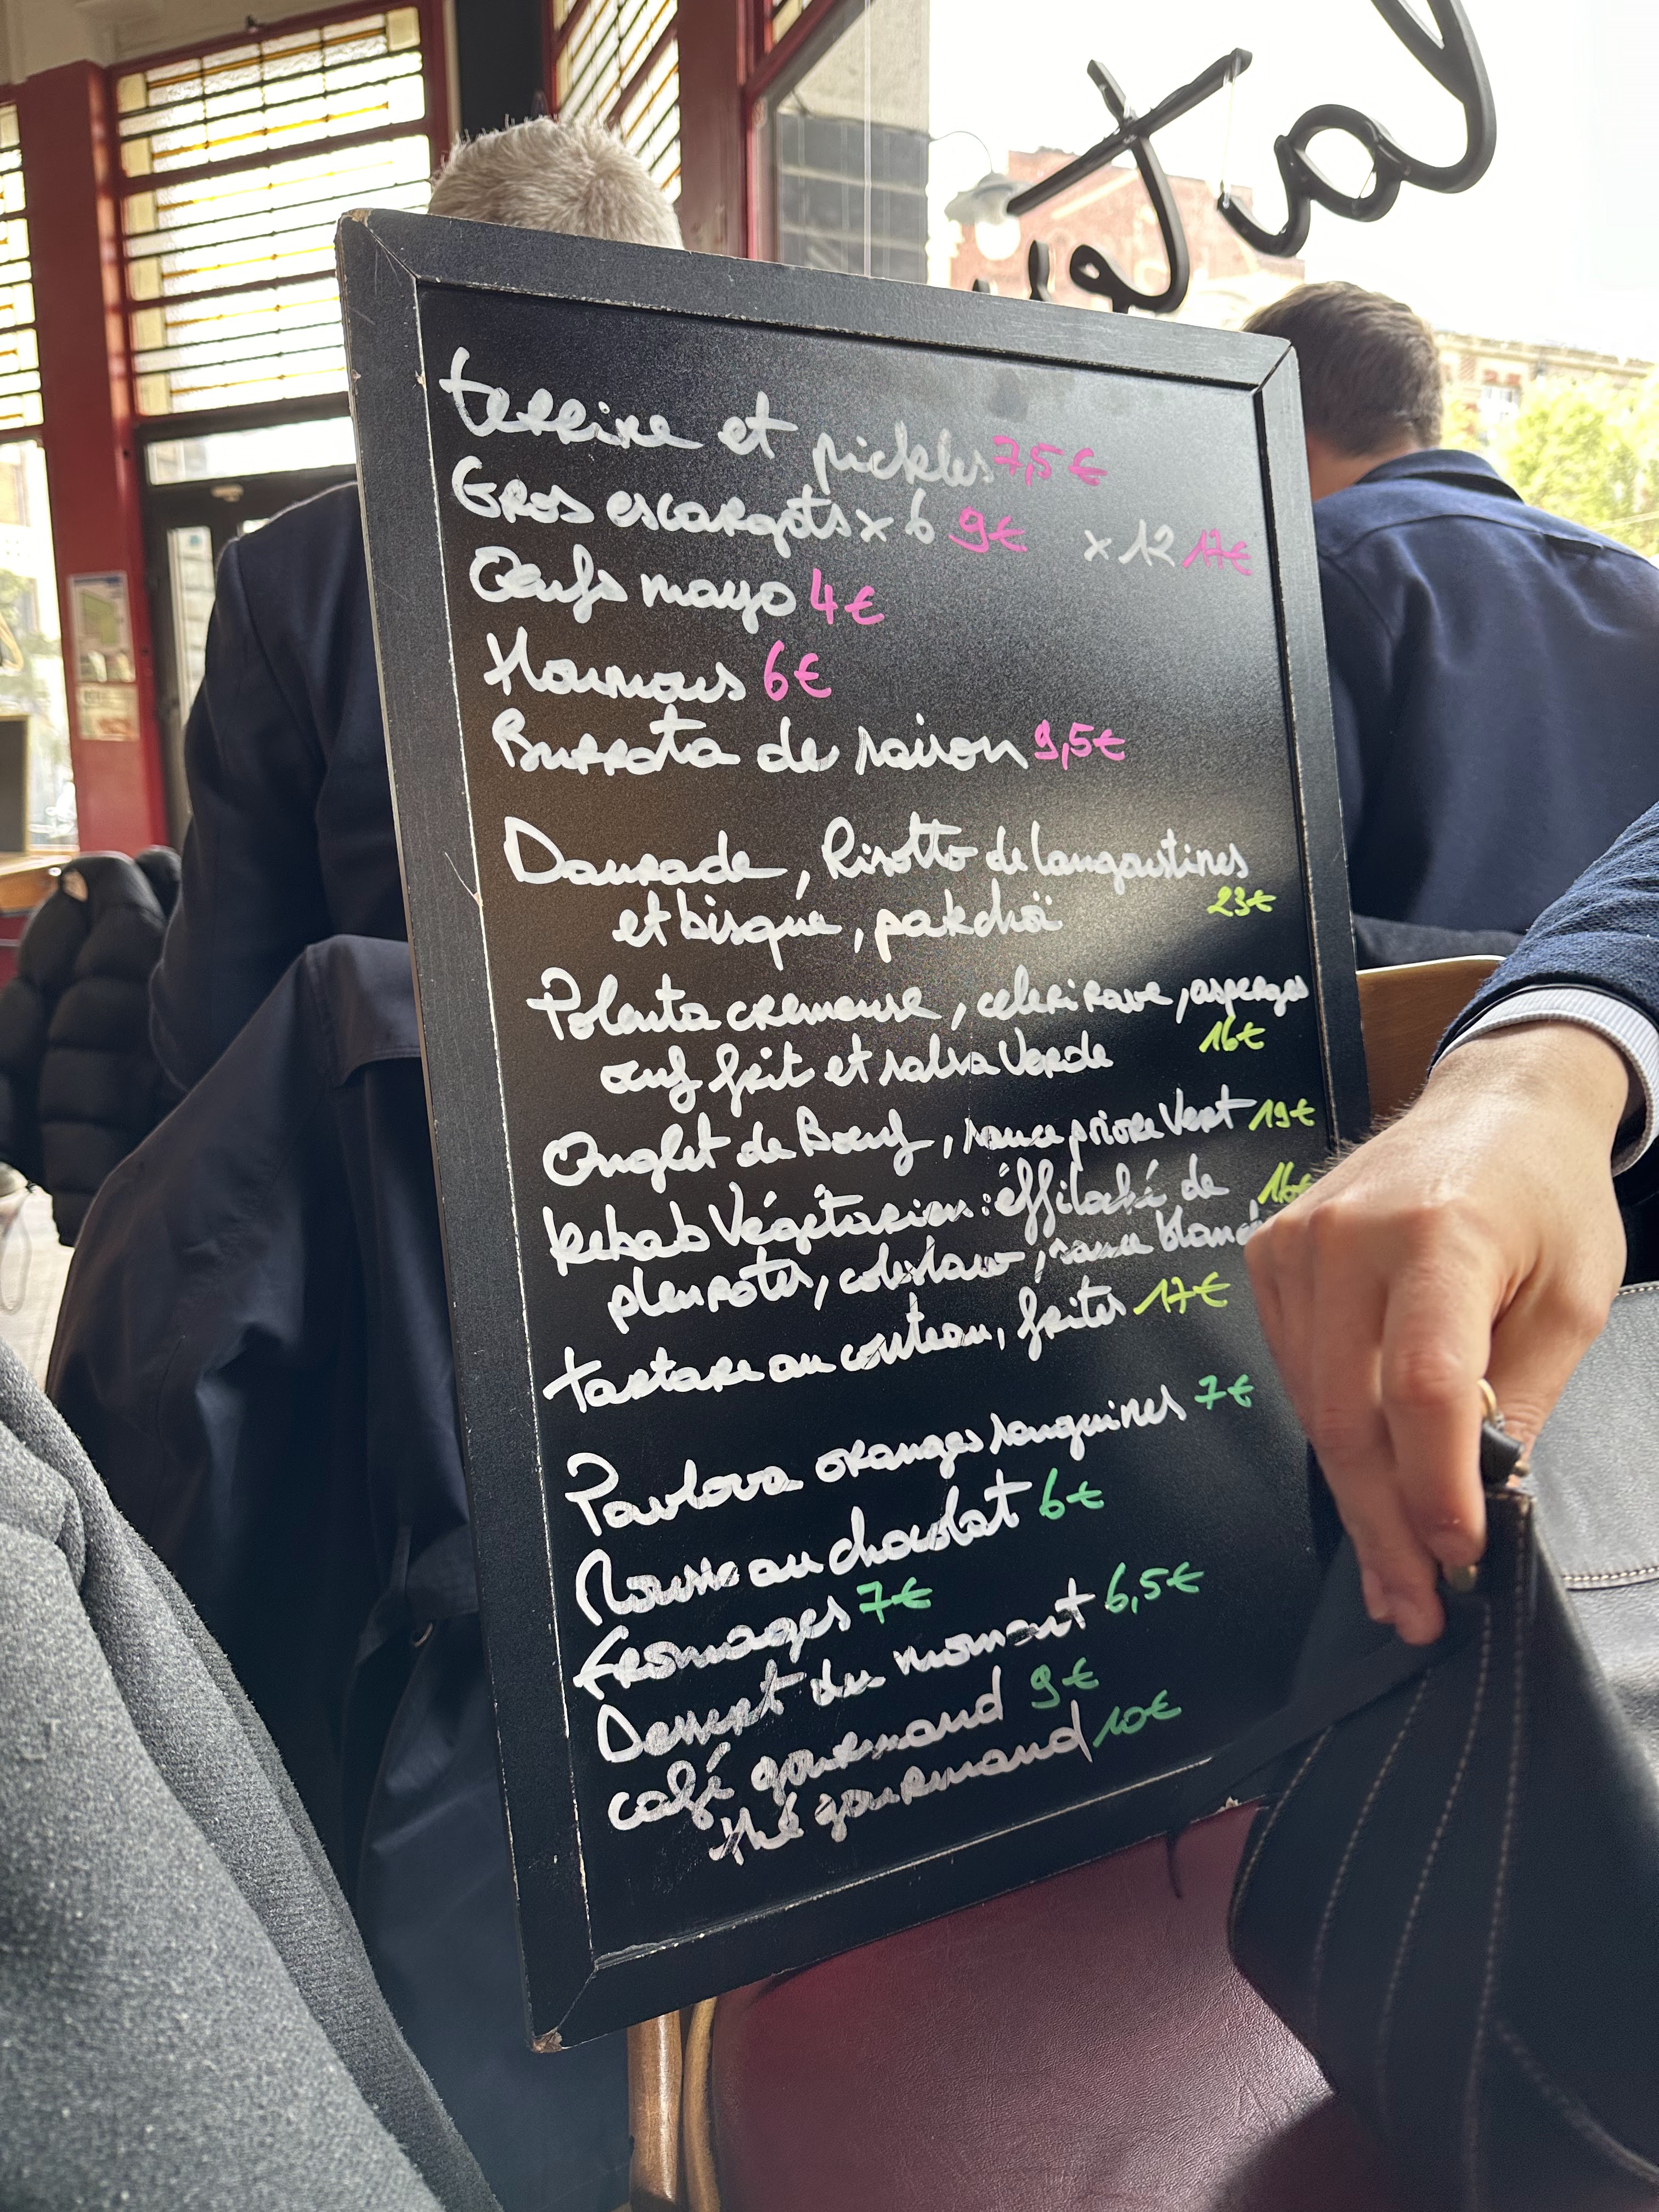 terrine et pickles 7,5€
Gros escargots x 6 9€ x 12 17€
Oeufs mayo 4€
Houmous 6€
Burrata de saison 9,5€
Daurade, Risotto de langoustines
et bisque, pakchoï 23€
Polenta cremeuse, celeri rave, asperges
œuf frit et salsa Verde 16€
Onglet de Bœuf, sauce poivre Vert 19€
kebab Végétarien : éffiloché de 16€
pleurotes, coleslaw, sauce blanche
tartare au couteau, frites 17€
Pavlova oranges sanguines 7€
Mousse au chocolat 6€
fromages 7€
Dessert du moment 6,5€
café gourmand 9€
thé gourmand 10€